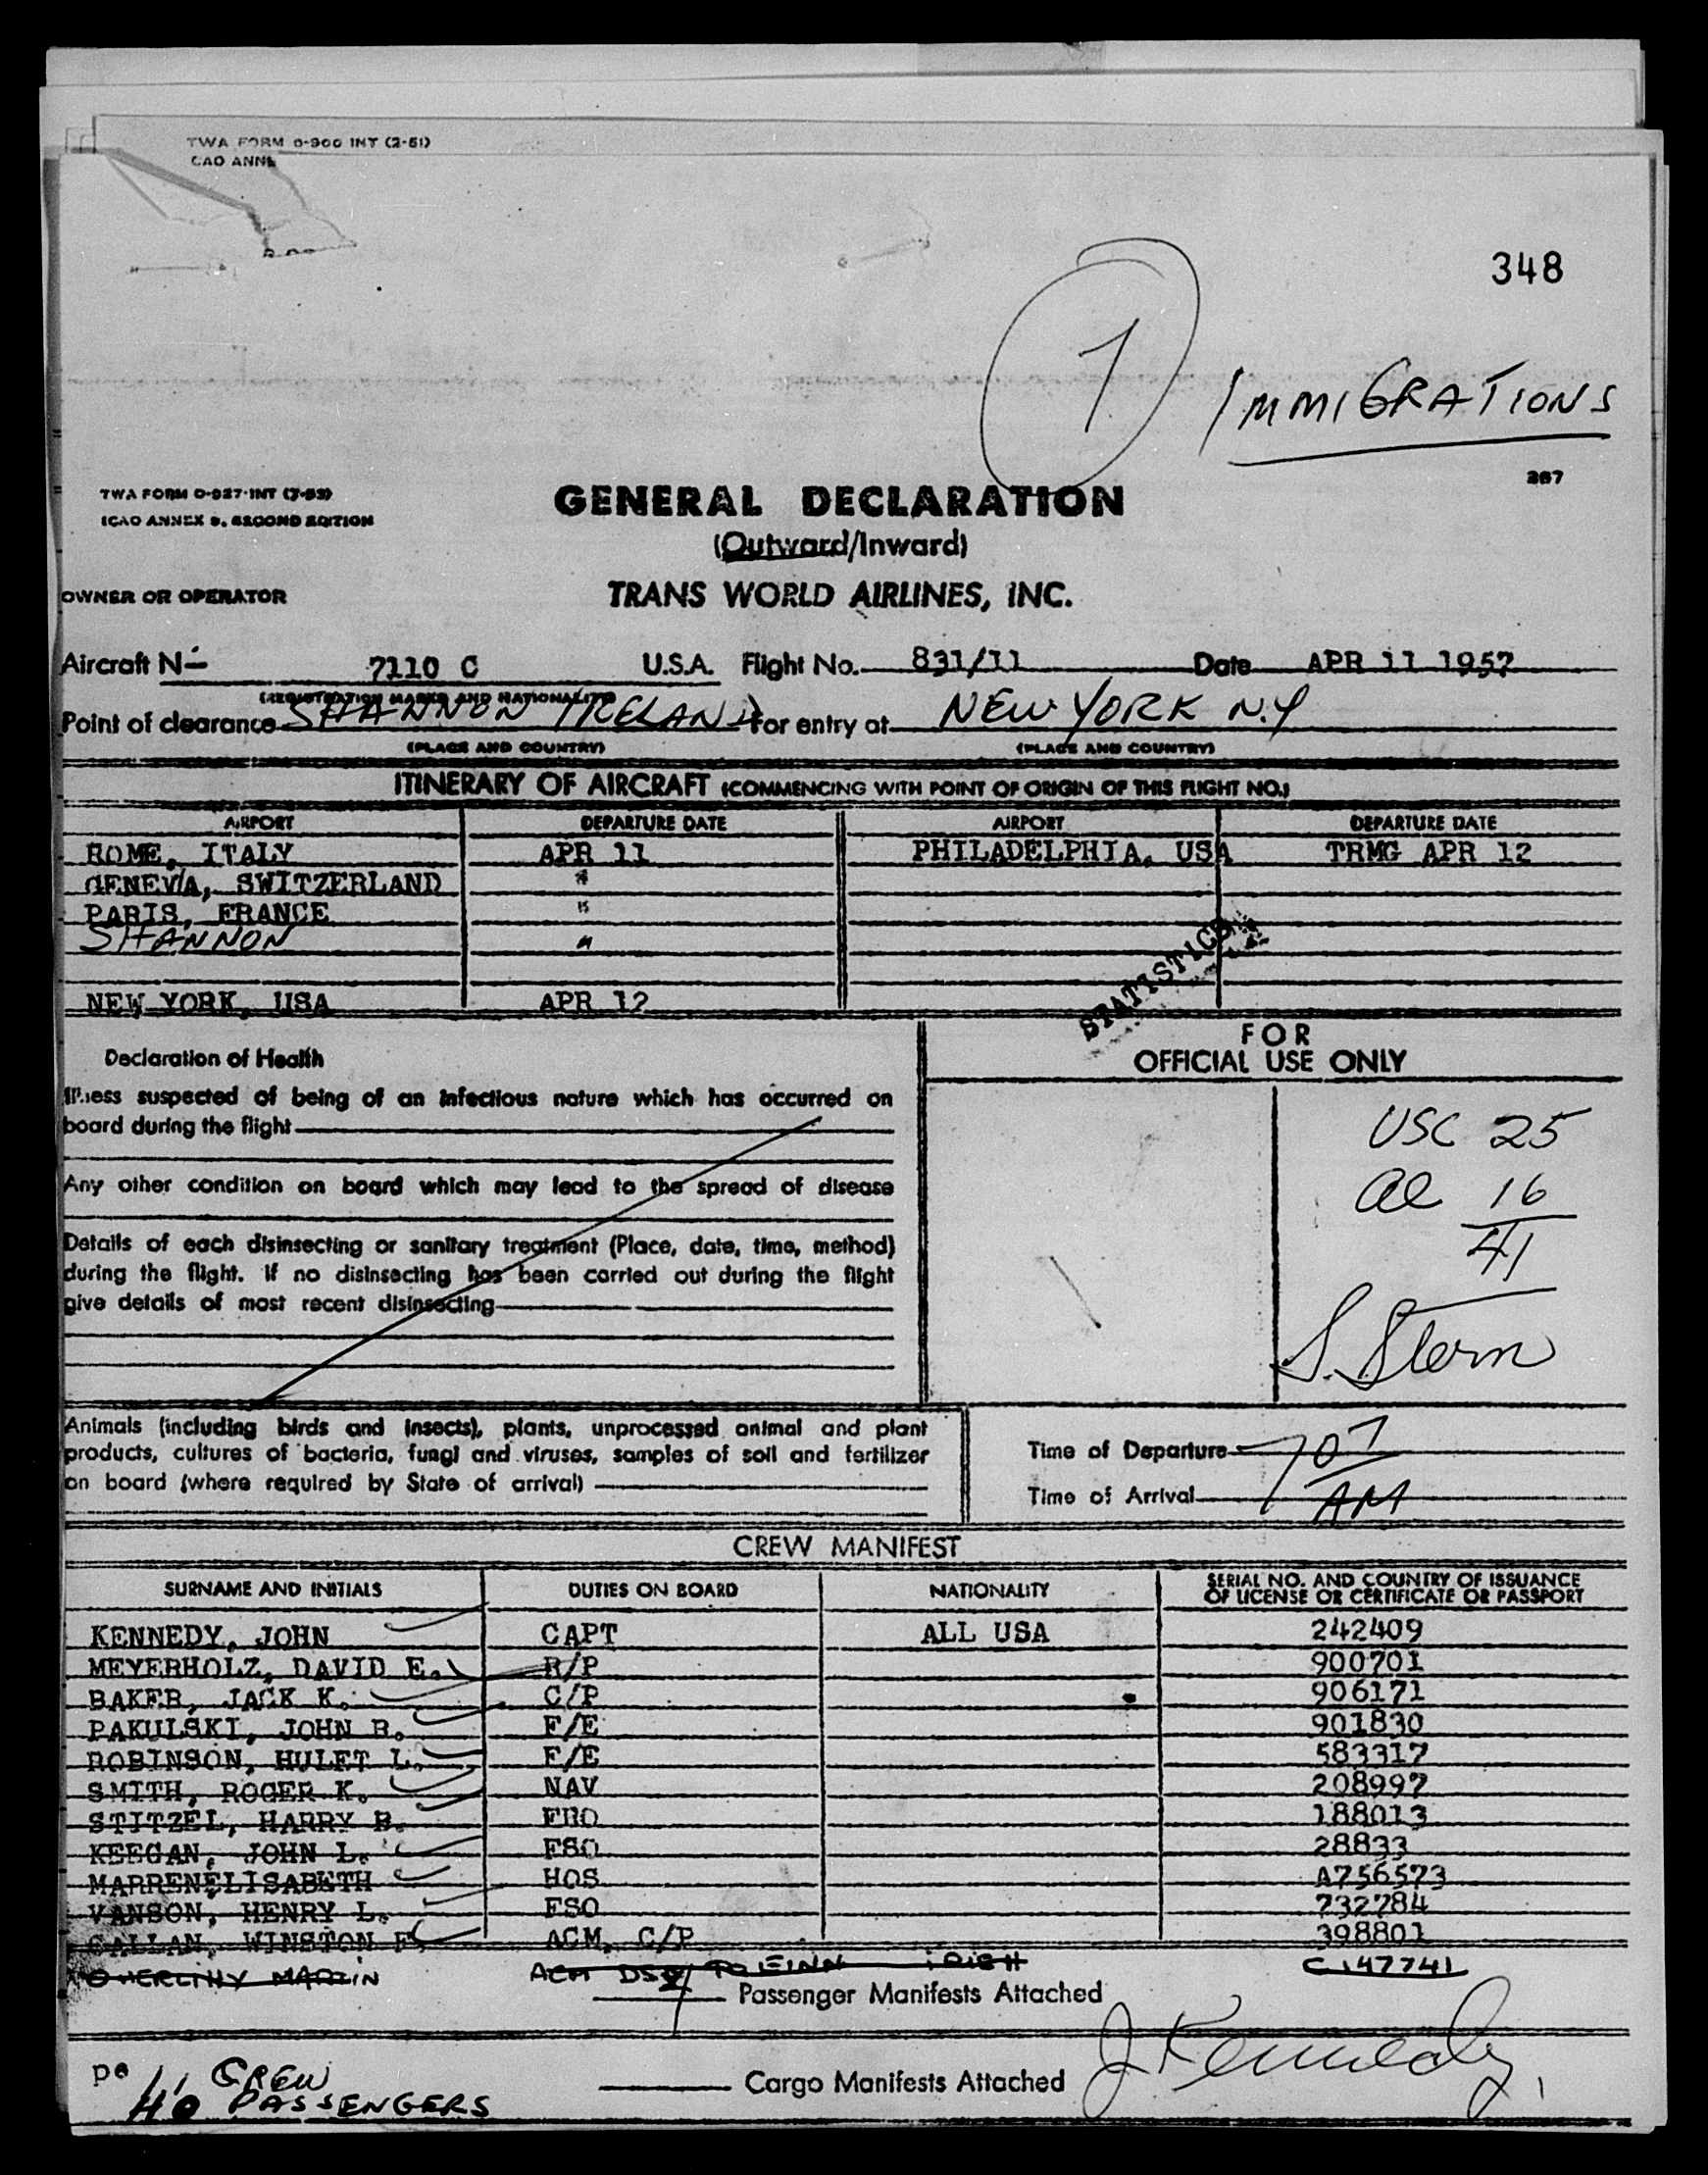 TWA FORM 0-900 INT (2-51)
CAO ANNE
348
1
IMMIGRATIONS
267
TWA FORM O-927-INT (7-53)
ICAO ANNEX 9, SECOND EDITION
GENERAL DECLARATION
(Outward/Inward)
OWNER OR OPERATOR TRANS WORLD AIRLINES, INC.
Aircraft N- 7110 C U.S.A. Flight No. 831/11 Date APR 11 1957
(REGISTRATION MARKS AND NATIONALITY)
Point of clearance SHANNON IRELAND For entry at NEW YORK N.Y
(PLACE AND COUNTRY) (PLACE AND COUNTRY)
ITINERARY OF AIRCRAFT (COMMENCING WITH POINT OF ORIGIN OF THIS FLIGHT NO.)
AIRPORT DEPARTURE DATE AIRPORT DEPARTURE DATE
ROME, ITALY APR 11 PHILADELPHIA, USA TRMG APR 12
GENEVA, SWITZERLAND "
PARIS, FRANCE "
SHANNON "
STATISTICS
NEW YORK, USA APR 12
FOR
OFFICIAL USE ONLY
Declaration of Health
Illness suspected of being of an infectious nature which has occurred on
board during the flight
Any other condition on board which may lead to the spread of disease
Details of each disinsecting or sanitary treatment (Place, date, time, method)
during the flight. If no disinsecting has been carried out during the flight
give details of most recent disinsecting
USC 25
al 16
41
S. Stern
Animals (including birds and insects), plants, unprocessed animal and plant
products, cultures of bacteria, fungi and viruses, samples of soil and fertilizer
on board (where required by State of arrival)
Time of Departure 707
Time of Arrival AM
CREW MANIFEST
SURNAME AND INITIALS DUTIES ON BOARD NATIONALITY SERIAL NO. AND COUNTRY OF ISSUANCE
OF LICENSE OR CERTIFICATE OR PASSPORT
KENNEDY, JOHN CAPT ALL USA 242409
MEYERHOLZ, DAVID E. R/P 900701
BAKER, JACK K. C/P 906171
PAKULSKI, JOHN B. F/E 901830
ROBINSON, HULET L. F/E 583317
SMITH, ROGER K. NAV 208997
STITZEL, HARRY B. FRO 188013
KEEGAN, JOHN L. FSO 28833
MARRENELISABETH HOS A756573
VANSON, HENRY L. FSO 732784
CALLAN, WINSTON F. ACM, C/P 398801
MARTIN ACM IRISH C 147741
Passenger Manifests Attached
J Kennedy
Cargo Manifests Attached
11 CREW
40 PASSENGERS